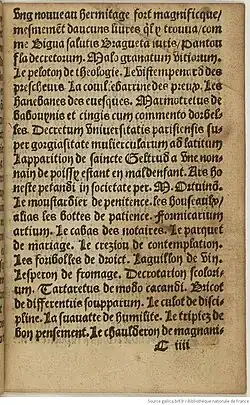 vng nouueau hermitage fort magnificque/
mesmemẽt daucuns liures ql̃z y trouua/com
me Bigua salutis Bragueta iuris/Pantou
fla decretorum. Malo granatum vitiorum.
Le peloton de theologie. Le vistempenard des
prescheurs. La couillebarrine des preux. Les
Hanebanes des euesques. Marmotretus de
babouynis et cingis cum commento dorbel-
les. Decretum vniuersitatis parisiensis su-
per gorgiasitate muliercularum ad placitum
Lapparition de saincte Geltrud a vne non-
nain de poissy estant en mal denfant. Ars ho
neste petandi in societate per. M. Ortuinũ.
Le moustardier de penitence. les houseaulx/
alias les bottes de patience. Formicarium
artium. Le cabas des notaires. Le parquet
de mariage. Le creziou de contemplation.
Les fariboles de droict. Laguillon de vin.
Lesperon de fromage. Decrotatorium scolari-
um. Tartaretus de modo cacandi. Bricot
de differentiis soupparum. Le culot de disci-
pline. La sauatte de humilite. Le tripiez de
bon pensement. Le chaulderon de magnani-
C iiii
Source gallica.bnf.fr / Bibliothèque nationale de France